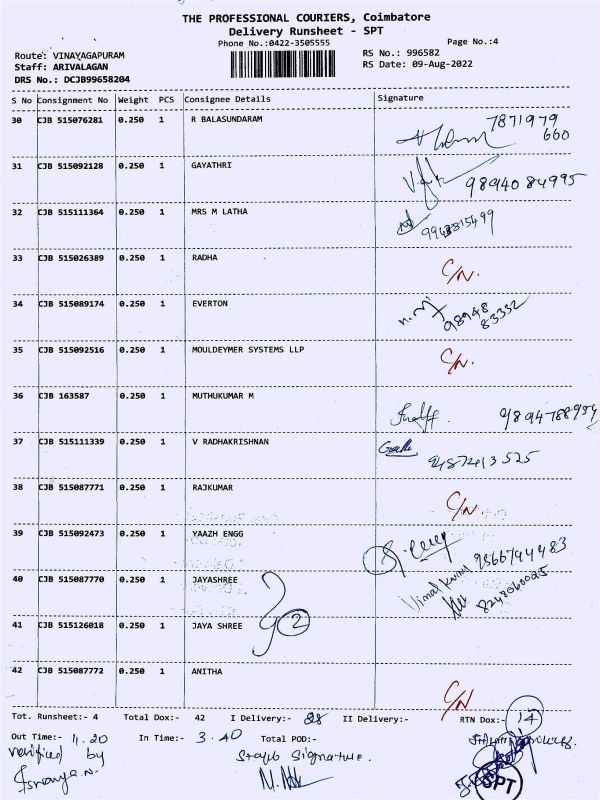 THE PROFESSIONAL COURIERS, Coimbatore
Delivery Runsheet - SPT
Phone No.:0422-3505555
Page No.:4
Route: VINAYAGAPURAM
RS No.: 996582
Staff: ARIVALAGAN
RS Date: 09-Aug-2022
DRS No.: DCJB99658204
S No Consignment No Weight PCS Consignee Details Signature
30 CJB 515076281 0.250 1 R BALASUNDARAM 7871979
660
31 CJB 515092128 0.250 1 GAYATHRI 9894084995
32 CJB 515111364 0.250 1 MRS M LATHA
33 CJB 515026389 0.250 1 RADHA C/N.
34 CJB 515089174 0.250 1 EVERTON 98948
83332
35 CJB 515092516 0.250 1 MOULDEYMER SYSTEMS LLP C/N.
36 CJB 163587 0.250 1 MUTHUKUMAR M
37 CJB 515111339 0.250 1 V RADHAKRISHNAN 9487413525
38 CJB 515087771 0.250 1 RAJKUMAR C/N.
39 CJB 515092473 0.250 1 YAAZH ENGG 9566744483
40 CJB 515087770 0.250 1 JAYASHREE Vimal Kumar
41 CJB 515126018 0.250 1 JAYA SHREE 2
42 CJB 515087772 0.250 1 ANITHA C/N
Tot. Runsheet:- 4 Total Dox:- 42 I Delivery:- 28 II Delivery:- RTN Dox:- 14
Out Time:- 11.20 In Time:- 3.40 Total POD:-
verified by
Staff Signature.
SPT